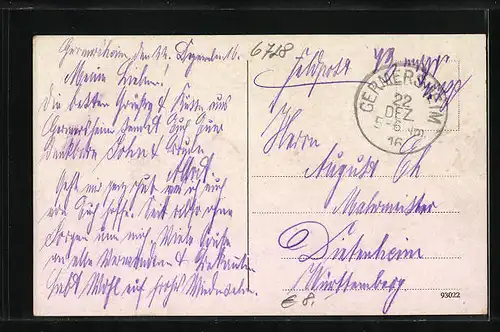 Germersheim, den 22. Dezember 16.
6728
Meine Lieben!
Feldpost
Die besten Grüße & Küsse aus
GERMERSHEIM
22
DEZ.
16
Germersheim sendet Euch Euer
dankbarer Sohn & Bruder
Herrn
August
Geht mir sehr gut was ich auch
Malermeister
von Euch hoffe. Seid also ohne
Sorgen um mich. Viele Grüße
Dietenheim
an alle Verwandten & Bekannten
Württemberg
Lebt Wohl auf frohes Wiedersehen.
€ 8.
93022